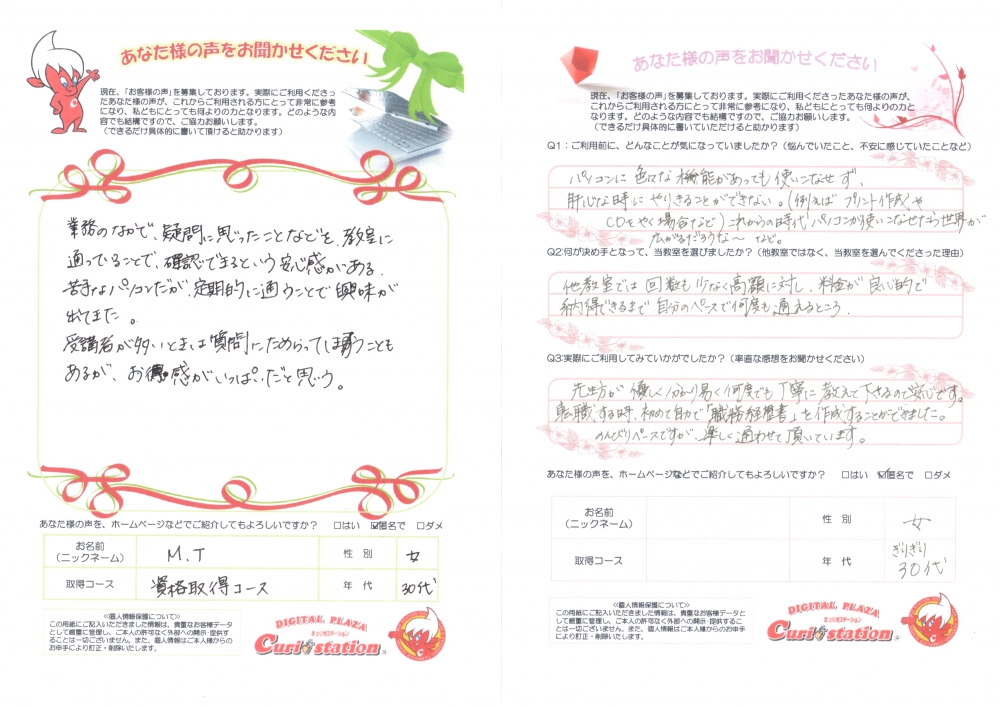 あなた様の声をお聞かせください
現在、「お客様の声」を募集しております。実際にご利用くださっ
たあなた様の声が、これからご利用される方にとって非常に参考
になり、私どもにとっても何よりの力となります。どのような内
容でも結構ですので、ご協力お願いします。
（できるだけ具体的に書いて頂けると助かります）
業務のなかで、疑問に思ったことなどを、教室に
通っていることで、確認できるという安心感がある。
苦手なパソコンだが、定期的に通うことで興味が
出てきた。
受講者が多いときは質問にためらってしまうことも
あるが、お得感がいっぱいだと思う。
あなた様の声を、ホームページなどでご紹介してもよろしいですか？ □はい ☑匿名で □ダメ
お名前
（ニックネーム）
M.T
性 別
女
取得コース
資格取得コース
年 代
30代
≪個人情報保護について≫
この用紙にご記入いただきました情報は、貴重なお客様データと
して厳重に管理し、ご本人の許可なく外部への開示・提供す
ることは一切ございません。また、個人情報はご本人様からの
お申手により訂正・削除いたします。
DIGITAL PLAZA
キュリオステーション
Curiostation
あなた様の声をお聞かせください
現在、「お客様の声」を募集しております。実際にご利用くださったあなた様の声が、
これからご利用される方にとって非常に参考になり、私どもにとっても何よりの力と
なります。どのような内容でも結構ですので、ご協力お願いします。
（できるだけ具体的に書いていただけると助かります）
Q1：ご利用前に、どんなことが気になっていましたか？（悩んでいたこと、不安に感じていたことなど）
パソコンに色々な機能があっても使いこなせず、
肝心な時にやりきることができない。（例えばプリント作成や
CDをやく場合など）これからの時代パソコンが使いこなせたら世界が
広がるだろうな〜など。
Q2:何が決め手となって、当教室を選びましたか？（他教室ではなく、当教室を選んでくださった理由）
他教室では回数も少なく高額に対し、料金が良心的で
納得できるまで自分のペースで何度も通えるところ。
Q3:実際にご利用してみていかがでしたか？（率直な感想をお聞かせください）
先生方が優しく分かり易く何度でも丁寧に教えて下さるので安心です。
転職する時、初めて自力で「職務経歴書」を作成することができました。
のんびりペースですが、楽しく通わせて頂いています。
あなた様の声を、ホームページなどでご紹介してもよろしいですか？ □はい ☑匿名で □ダメ
お名前
（ニックネーム）
性 別
女
取得コース
年 代
ぎりぎり
30代
≪個人情報保護について≫
この用紙にご記入いただきました情報は、貴重なお客様データと
して厳重に管理し、ご本人の許可なく外部への開示・提供するこ
とは一切ございません。また、個人情報はご本人様からのお申手
により訂正・削除いたします。
DIGITAL PLAZA
キュリオステーション
Curiostation